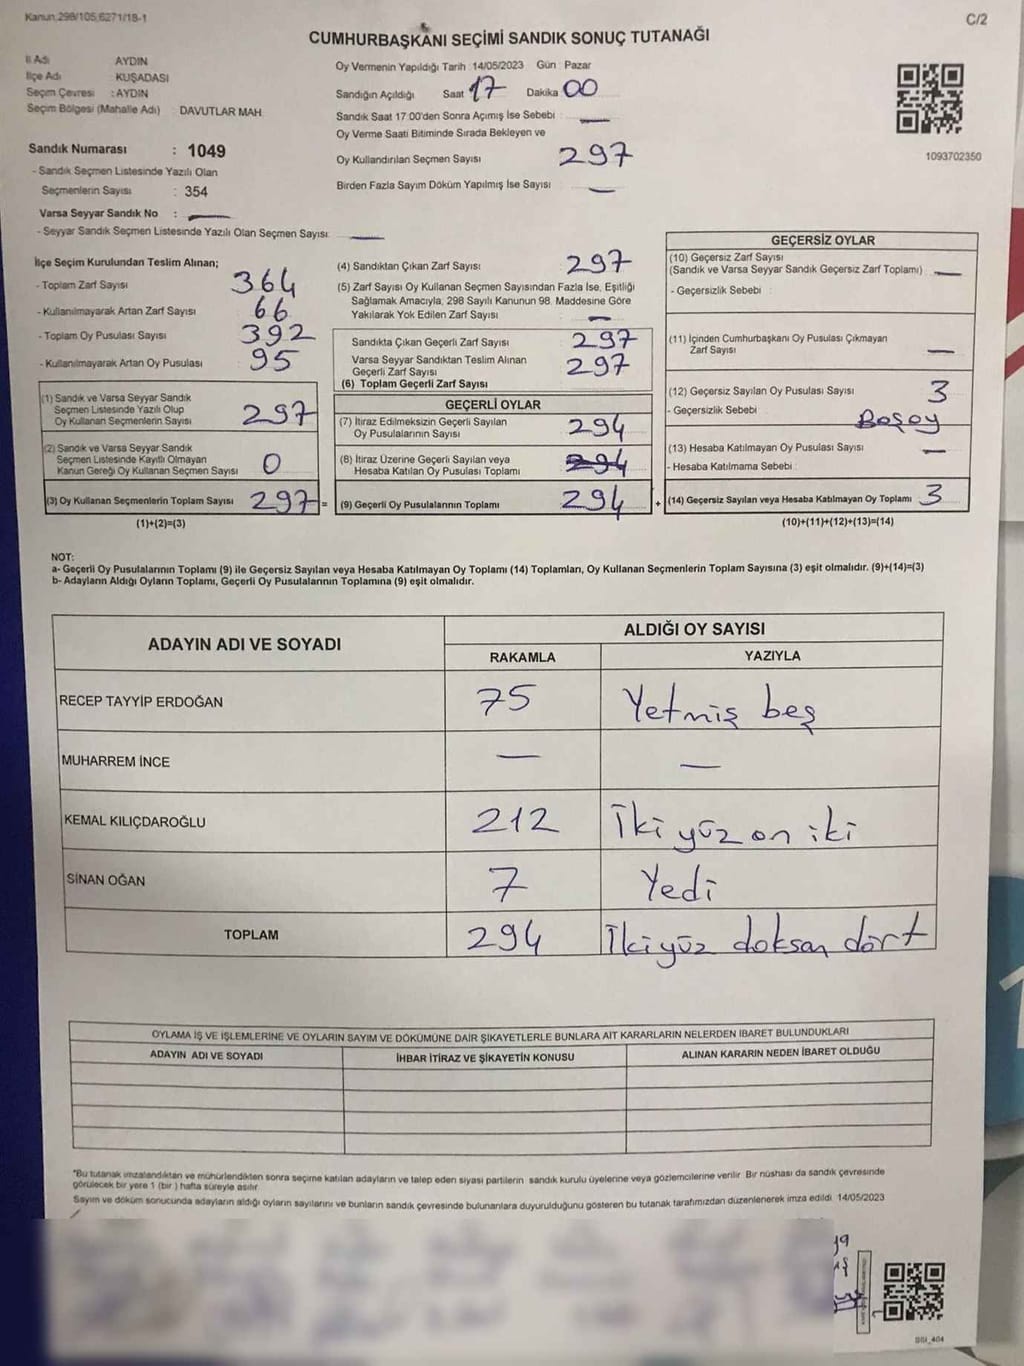 Kanun:298/105,6271/18-1
C/2
CUMHURBAŞKANI SEÇİMİ SANDIK SONUÇ TUTANAĞI
İl Adı AYDIN
İlçe Adı : KUŞADASI
Seçim Çevresi : AYDIN
Seçim Bölgesi (Mahalle Adı) : DAVUTLAR MAH.
Sandık Numarası : 1049
- Sandık Seçmen Listesinde Yazılı Olan
Seçmenlerin Sayısı : 354
Varsa Seyyar Sandık No : —
- Seyyar Sandık Seçmen Listesinde Yazılı Olan Seçmen Sayısı: —
Oy Vermenin Yapıldığı Tarih :14/05/2023 Gün : Pazar
Sandığın Açıldığı Saat 17 Dakika 00
Sandık Saat 17:00'den Sonra Açımış İse Sebebi : —
Oy Verme Saati Bitiminde Sırada Bekleyen ve
Oy Kullandırılan Seçmen Sayısı 297
Birden Fazla Sayım Döküm Yapılmış İse Sayısı —
1093702350
İlçe Seçim Kurulundan Teslim Alınan;
- Toplam Zarf Sayısı 364
- Kullanılmayarak Artan Zarf Sayısı 66
- Toplam Oy Pusulası Sayısı 392
- Kullanılmayarak Artan Oy Pusulası 95
(1) Sandık ve Varsa Seyyar Sandık
Seçmen Listesinde Yazılı Olup
Oy Kullanan Seçmenlerin Sayısı 297
(2) Sandık ve Varsa Seyyar Sandık
Seçmen Listesinde Kayıtlı Olmayan
Kanun Gereği Oy Kullanan Seçmen Sayısı 0
(3) Oy Kullanan Seçmenlerin Toplam Sayısı 297 =
(1)+(2)=(3)
(4) Sandıktan Çıkan Zarf Sayısı 297
(5) Zarf Sayısı Oy Kullanan Seçmen Sayısından Fazla İse, Eşitliği
Sağlamak Amacıyla, 298 Sayılı Kanunun 98. Maddesine Göre
Yakılarak Yok Edilen Zarf Sayısı —
Sandıkta Çıkan Geçerli Zarf Sayısı 297
Varsa Seyyar Sandıktan Teslim Alınan
Geçerli Zarf Sayısı 297
(6) Toplam Geçerli Zarf Sayısı
GEÇERLİ OYLAR
(7) İtiraz Edilmeksizin Geçerli Sayılan
Oy Pusulalarının Sayısı 294
(8) İtiraz Üzerine Geçerli Sayılan veya
Hesaba Katılan Oy Pusulası Toplamı 294
(9) Geçerli Oy Pusulalarının Toplamı 294 +
GEÇERSİZ OYLAR
(10) Geçersiz Zarf Sayısı
(Sandık ve Varsa Seyyar Sandık Geçersiz Zarf Toplamı) —
- Geçersizlik Sebebi :
(11) İçinden Cumhurbaşkanı Oy Pusulası Çıkmayan
Zarf Sayısı —
(12) Geçersiz Sayılan Oy Pusulası Sayısı 3
- Geçersizlik Sebebi : Boşoy
(13) Hesaba Katılmayan Oy Pusulası Sayısı —
- Hesaba Katılmama Sebebi :
(14) Geçersiz Sayılan veya Hesaba Katılmayan Oy Toplamı 3
(10)+(11)+(12)+(13)=(14)
NOT:
a- Geçerli Oy Pusulalarının Toplamı (9) ile Geçersiz Sayılan veya Hesaba Katılmayan Oy Toplamı (14) Toplamları, Oy Kullanan Seçmenlerin Toplam Sayısına (3) eşit olmalıdır. (9)+(14)=(3)
b- Adayların Aldığı Oyların Toplamı, Geçerli Oy Pusulalarının Toplamına (9) eşit olmalıdır.
ADAYIN ADI VE SOYADI ALDIĞI OY SAYISI
RAKAMLA YAZIYLA
RECEP TAYYİP ERDOĞAN 75 Yetmiş beş
MUHARREM İNCE — —
KEMAL KILIÇDAROĞLU 212 İki yüz on iki
SİNAN OĞAN 7 Yedi
TOPLAM 294 İkiyüz doksan dört
OYLAMA İŞ VE İŞLEMLERİNE VE OYLARIN SAYIM VE DÖKÜMÜNE DAİR ŞİKAYETLERLE BUNLARA AİT KARARLARIN NELERDEN İBARET BULUNDUKLARI
ADAYIN ADI VE SOYADI İHBAR İTİRAZ VE ŞİKAYETİN KONUSU ALINAN KARARIN NEDEN İBARET OLDUĞU
*Bu tutanak imzalandıktan ve mühürlendikten sonra seçime katılan adayların ve talep eden siyasi partilerin sandık kurulu üyelerine veya gözlemcilerine verilir. Bir nüshası da sandık çevresinde
görülecek bir yere 1 (bir ) hafta süreyle asılır.
Sayım ve döküm sonucunda adayların aldığı oyların sayılarını ve bunların sandık çevresinde bulunanlara duyurulduğunu gösteren bu tutanak tarafımızdan düzenlenerek imza edildi. 14/05/2023